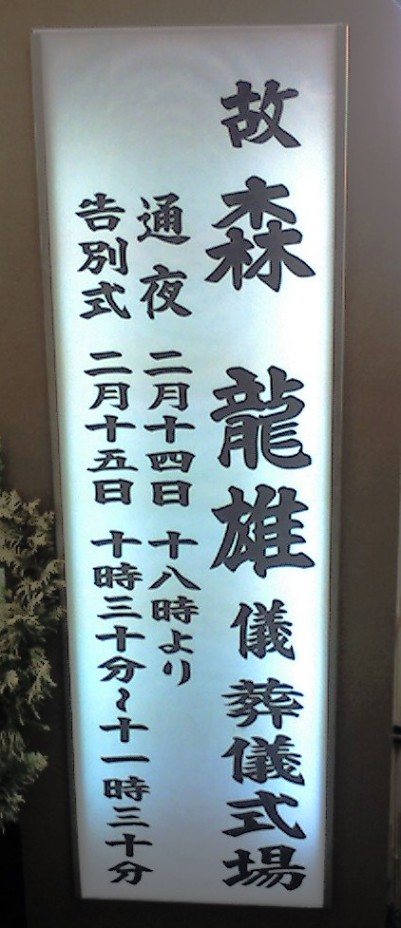 故 森 龍雄 儀 葬儀式場
通夜 二月十四日 十八時より
告別式 二月十五日 十時三十分~十一時三十分